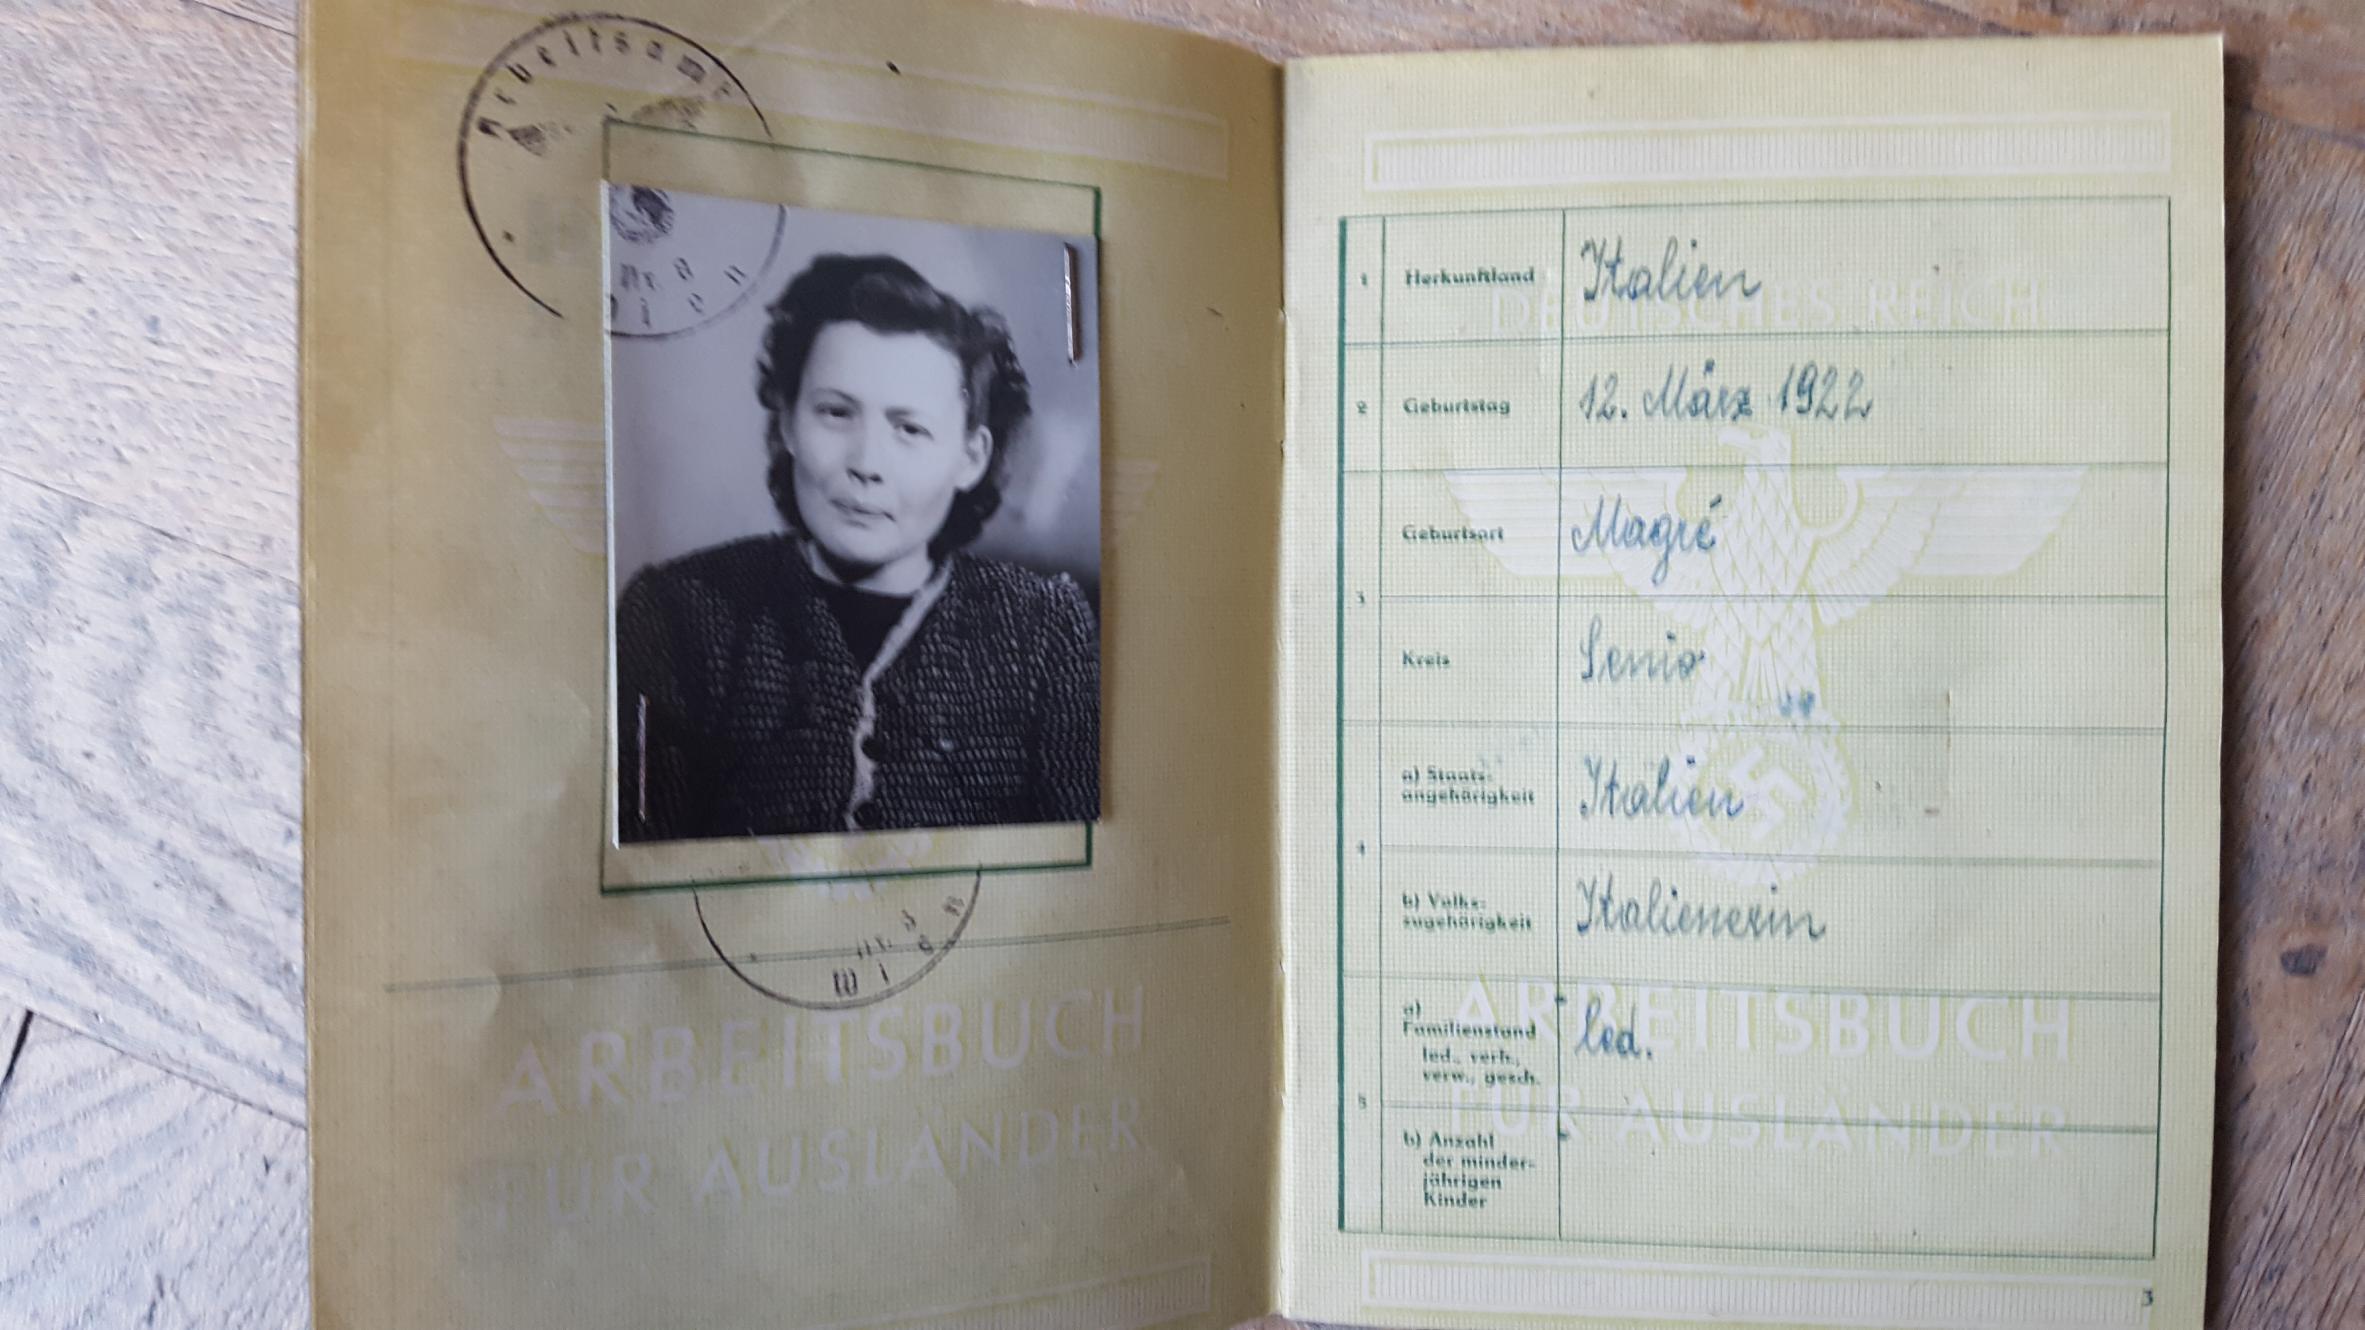 Arbeitsamt
Wien
Wien
ARBEITSBUCH
FÜR AUSLÄNDER
DEUTSCHES REICH
1 Herkunftland Italien
2 Geburtstag 12. März 1922
3
Geburtsort Magré
Kreis Senio
4
a) Staats-
angehörigkeit Italien
b) Volks-
zugehörigkeit Italienerin
5
a)
Familienstand led.
led., verh.,
verw., gesch.
b) Anzahl
der minder-
jährigen
Kinder
ARBEITSBUCH
FÜR AUSLÄNDER
3